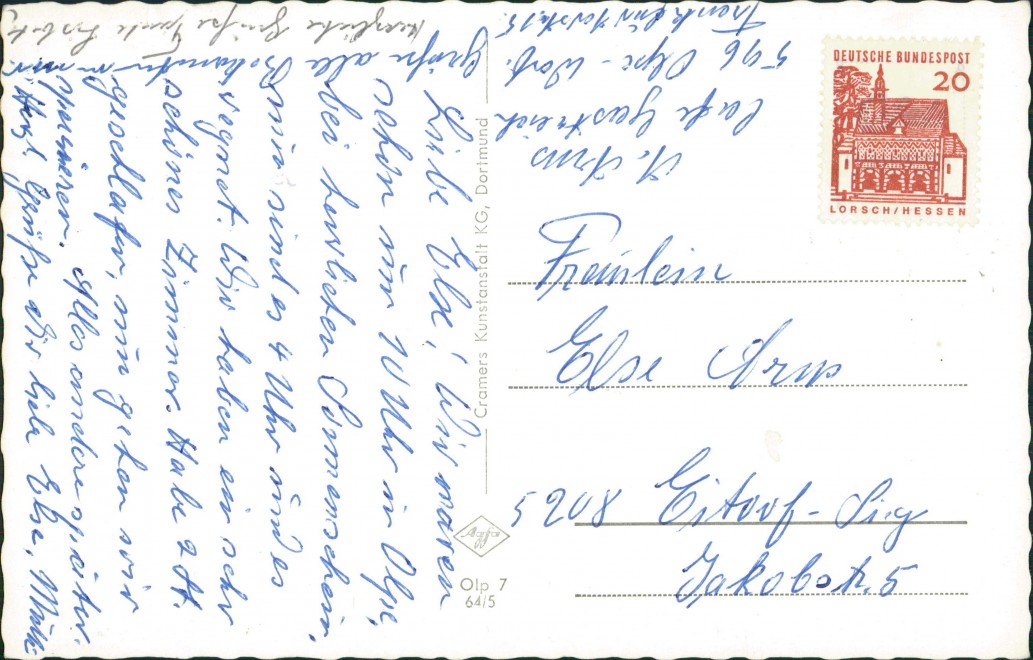 Liebe Else! Wir waren
schon um 10 Uhr in Olpe,
bei herrlichem Sonnenschein,
nun sind es 4 Uhr und es
regnet. Wir haben ein sehr
schönes Zimmer. Habe 2 St.
geschlafen, nun gehen wir
spazieren. Alles andere später.
Herzl. Grüße Dir liebe Else, Mutti
Grüße alle Bekannten von mir
Herzliche Grüße Tante
A. Arns
Cafe Gastreich
596 Olpe - Westf.
Frankfurterstr. 15
DEUTSCHE BUNDESPOST
20
LORSCH/HESSEN
Fräulein
Else Arns
5208 Eitorf-Sieg
Jakobstr. 5
Cramers Kunstanstalt KG, Dortmund
Agfa
Olp 7
64/5